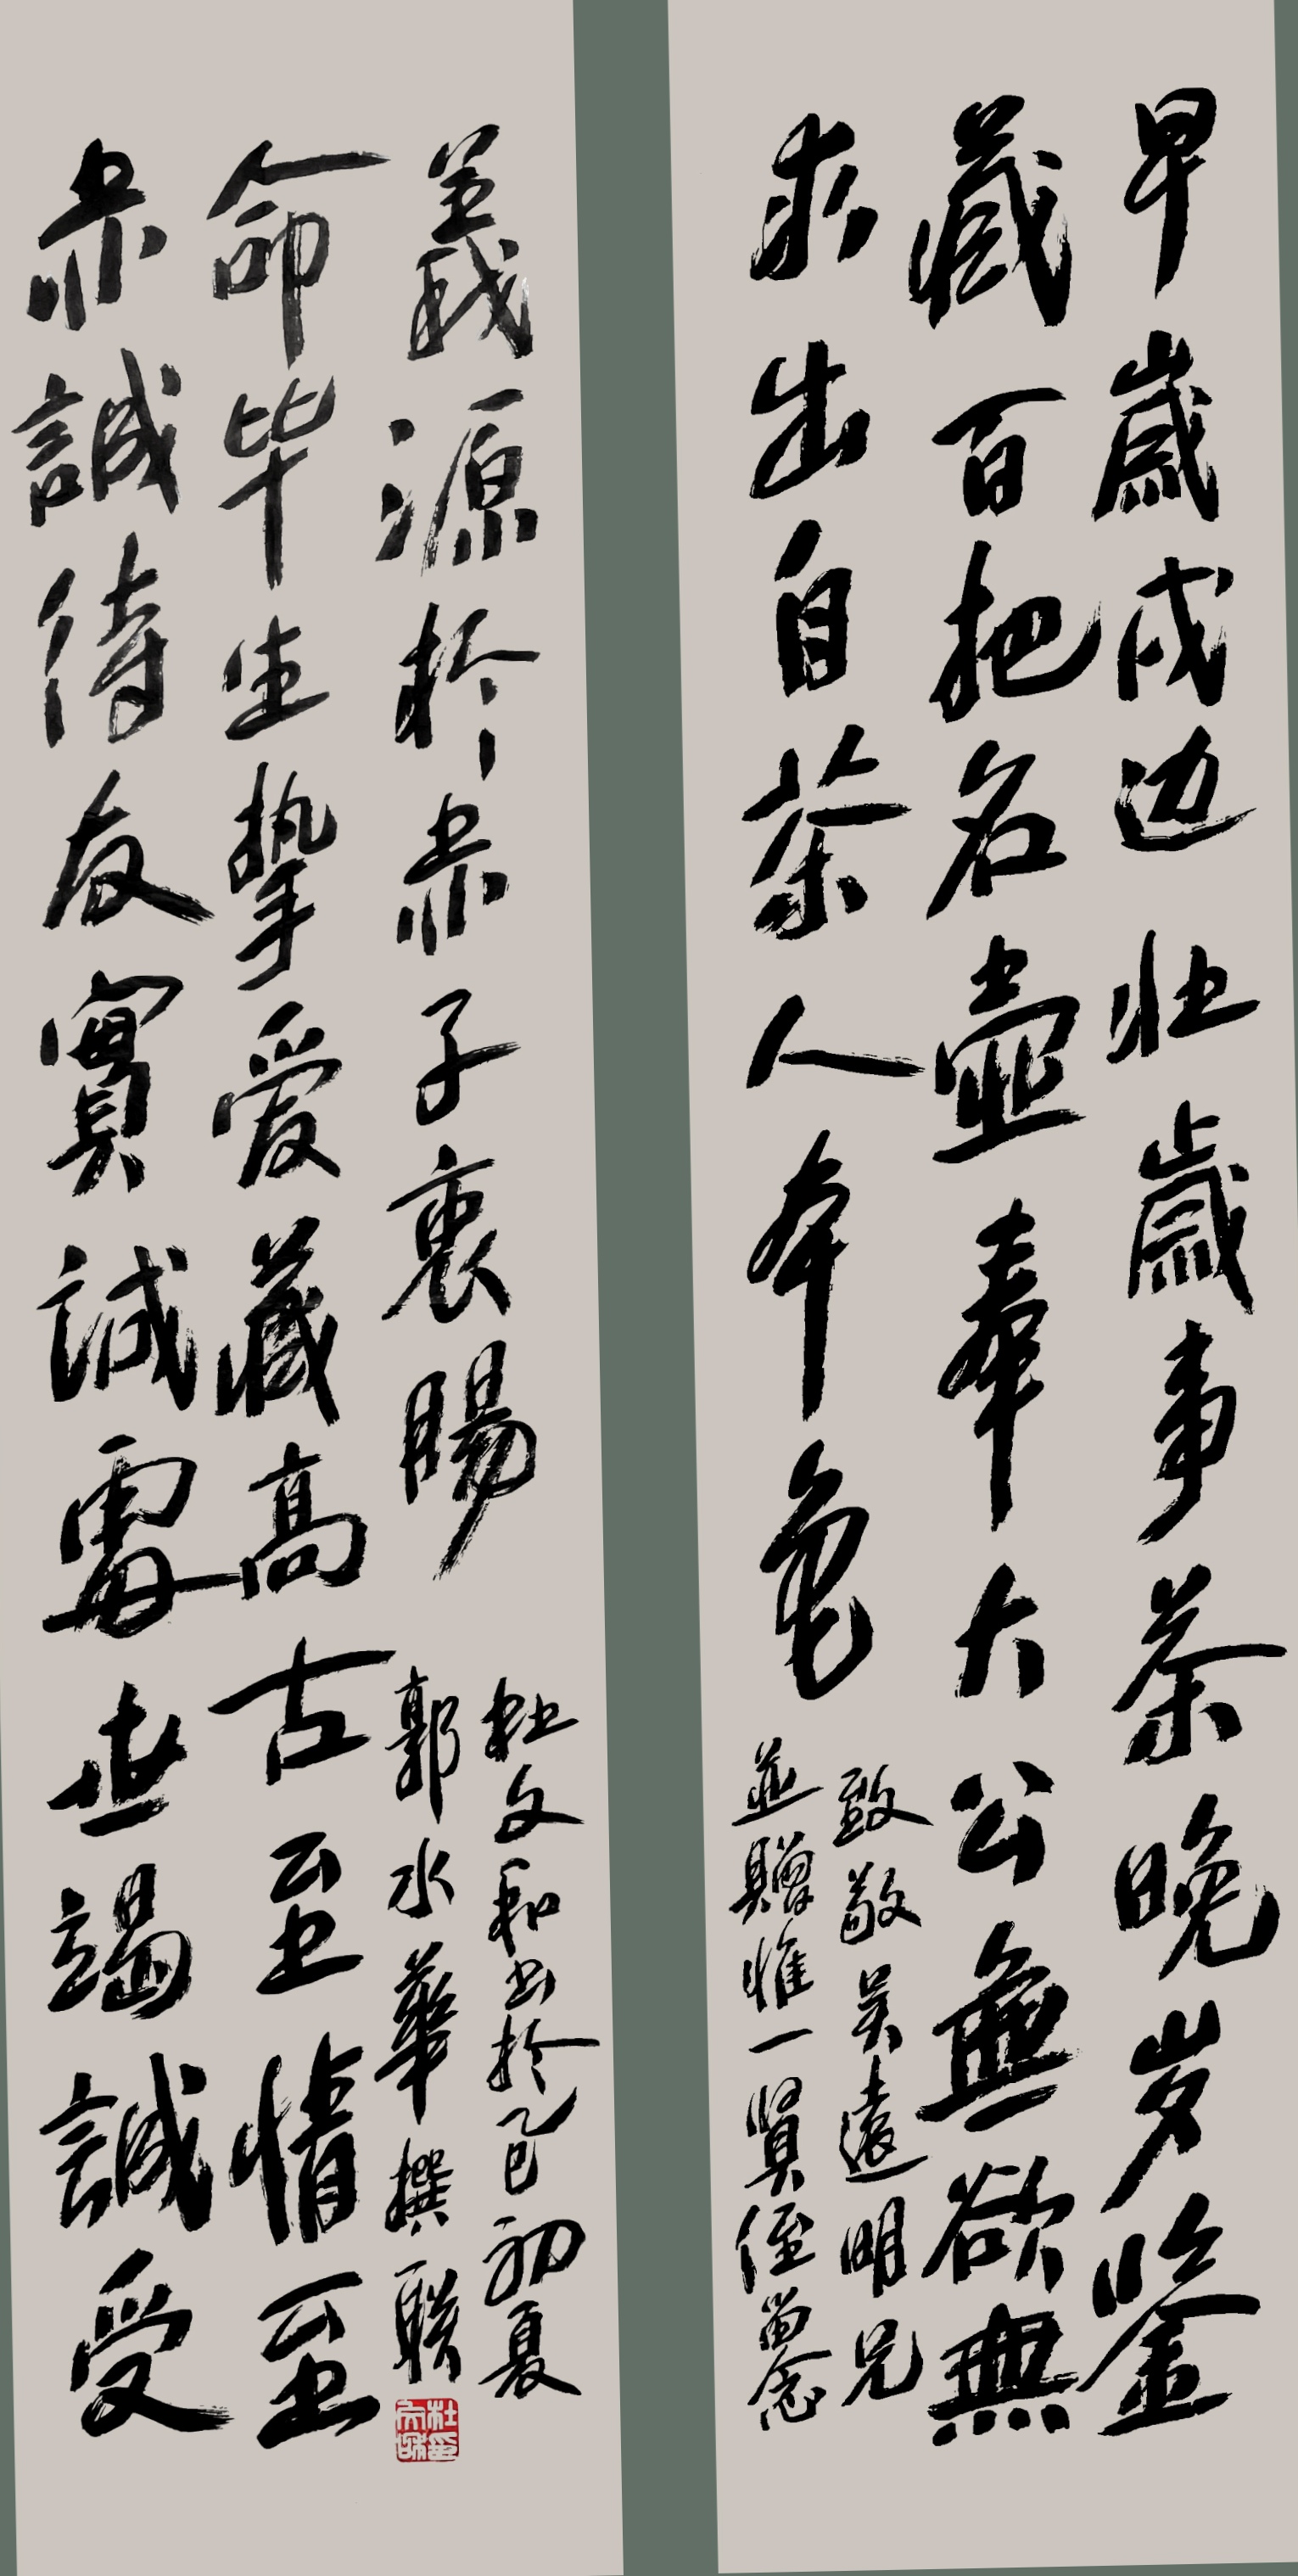 早歲戍边壯歲事茶晚岁鉴
藏百把名壺奉大公無欲無
求出自茶人本色
致敬吴遠明兄
並贈惟一賢侄留念
赤誠待友實誠處世竭誠受
命毕生挚爱藏高古至情至
義源於赤子衷腸
郭水華撰聯
杜文和书於乙巳初夏
杜文和印